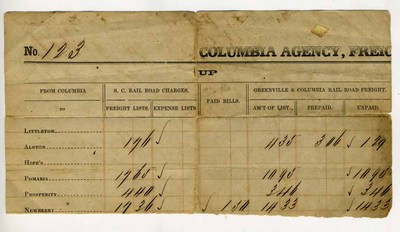 No. 123 COLUMBIA AGENCY, FREIG
UP
FROM COLUMBIA S. C. RAIL ROAD CHARGES. PAID BILLS. GREENVILLE & COLUMBIA RAIL ROAD FREIGHT.
TO FREIGHT LISTS. EXPENSE LISTS AM'T OF LIST. PREPAID. UNPAID.
LITTLETON
ALSTON 196 435 306 129
HOPE'S
POMARIA 1765 1095 1095
PROSPERITY 440 346 346
NEWBERRY 1936 150 1433 1433